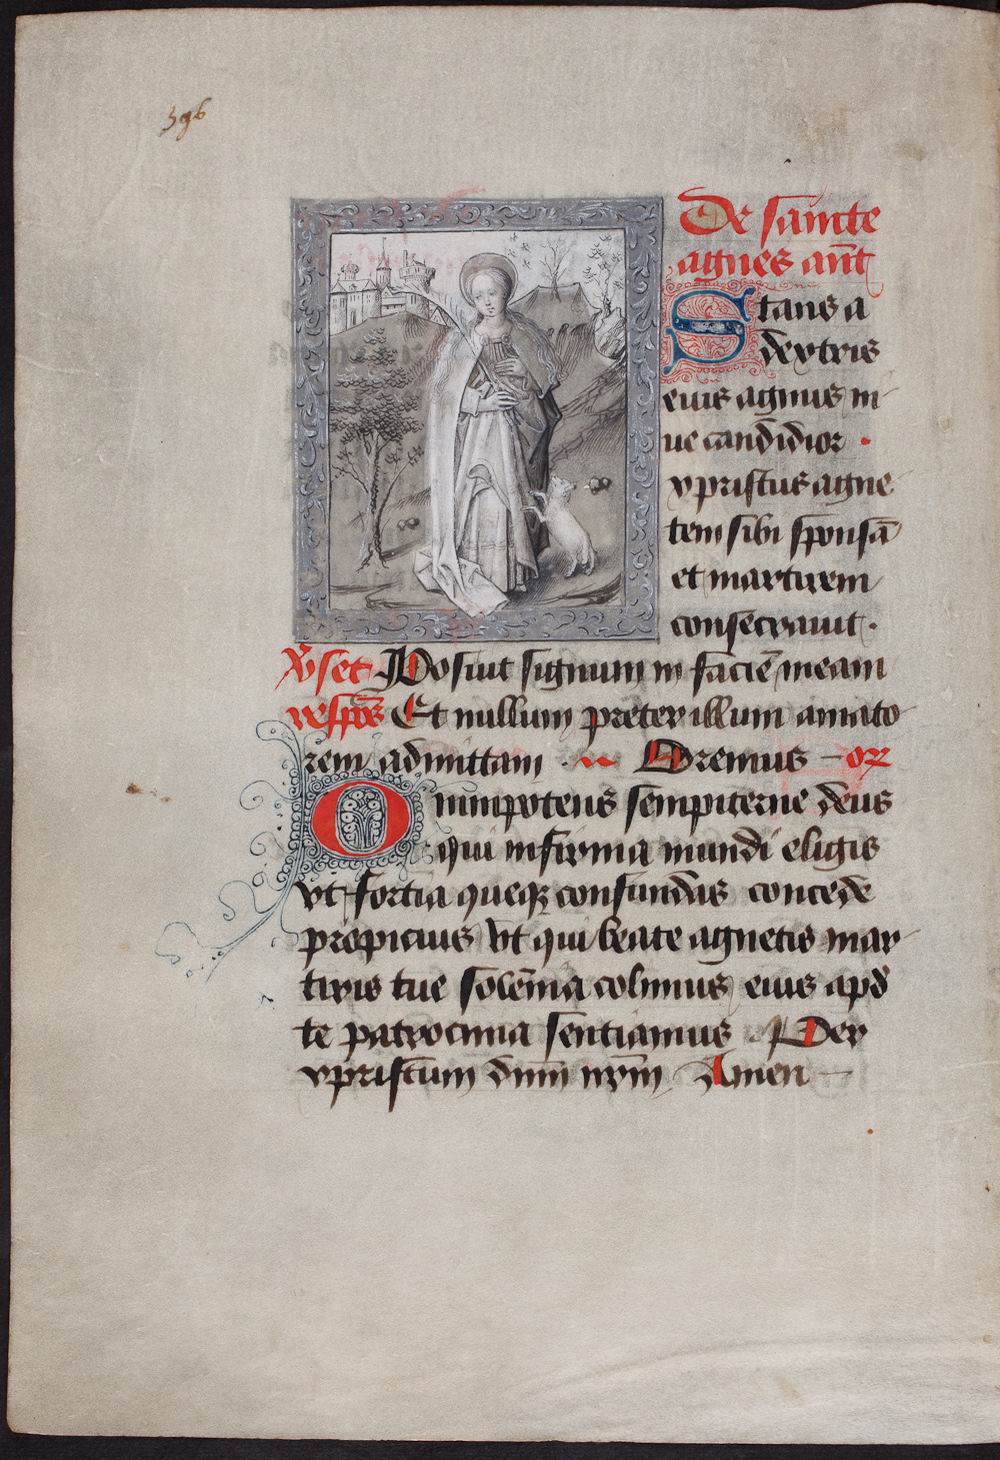 396
De saincte
agnes ant̄
Stans a
dextris
eius agnus ni
ue candidior .
xpristus agne
tem sibi sponsā
et martirem
consecrauit .
V̄set Posuit signum in faciē meam
respōs Et nullum preter illum amato
rem admittam . Oremus or
Omnipotens sempiterne deus
qui infirma mundi eligis
vt fortia queqꝫ confundas concede
propicius vt qui beate agnetis mar
tiris tue solēnia colimus eius apd̄
te patrocinia sentiamus Per
xpristum dn̄m nr̄m Amen